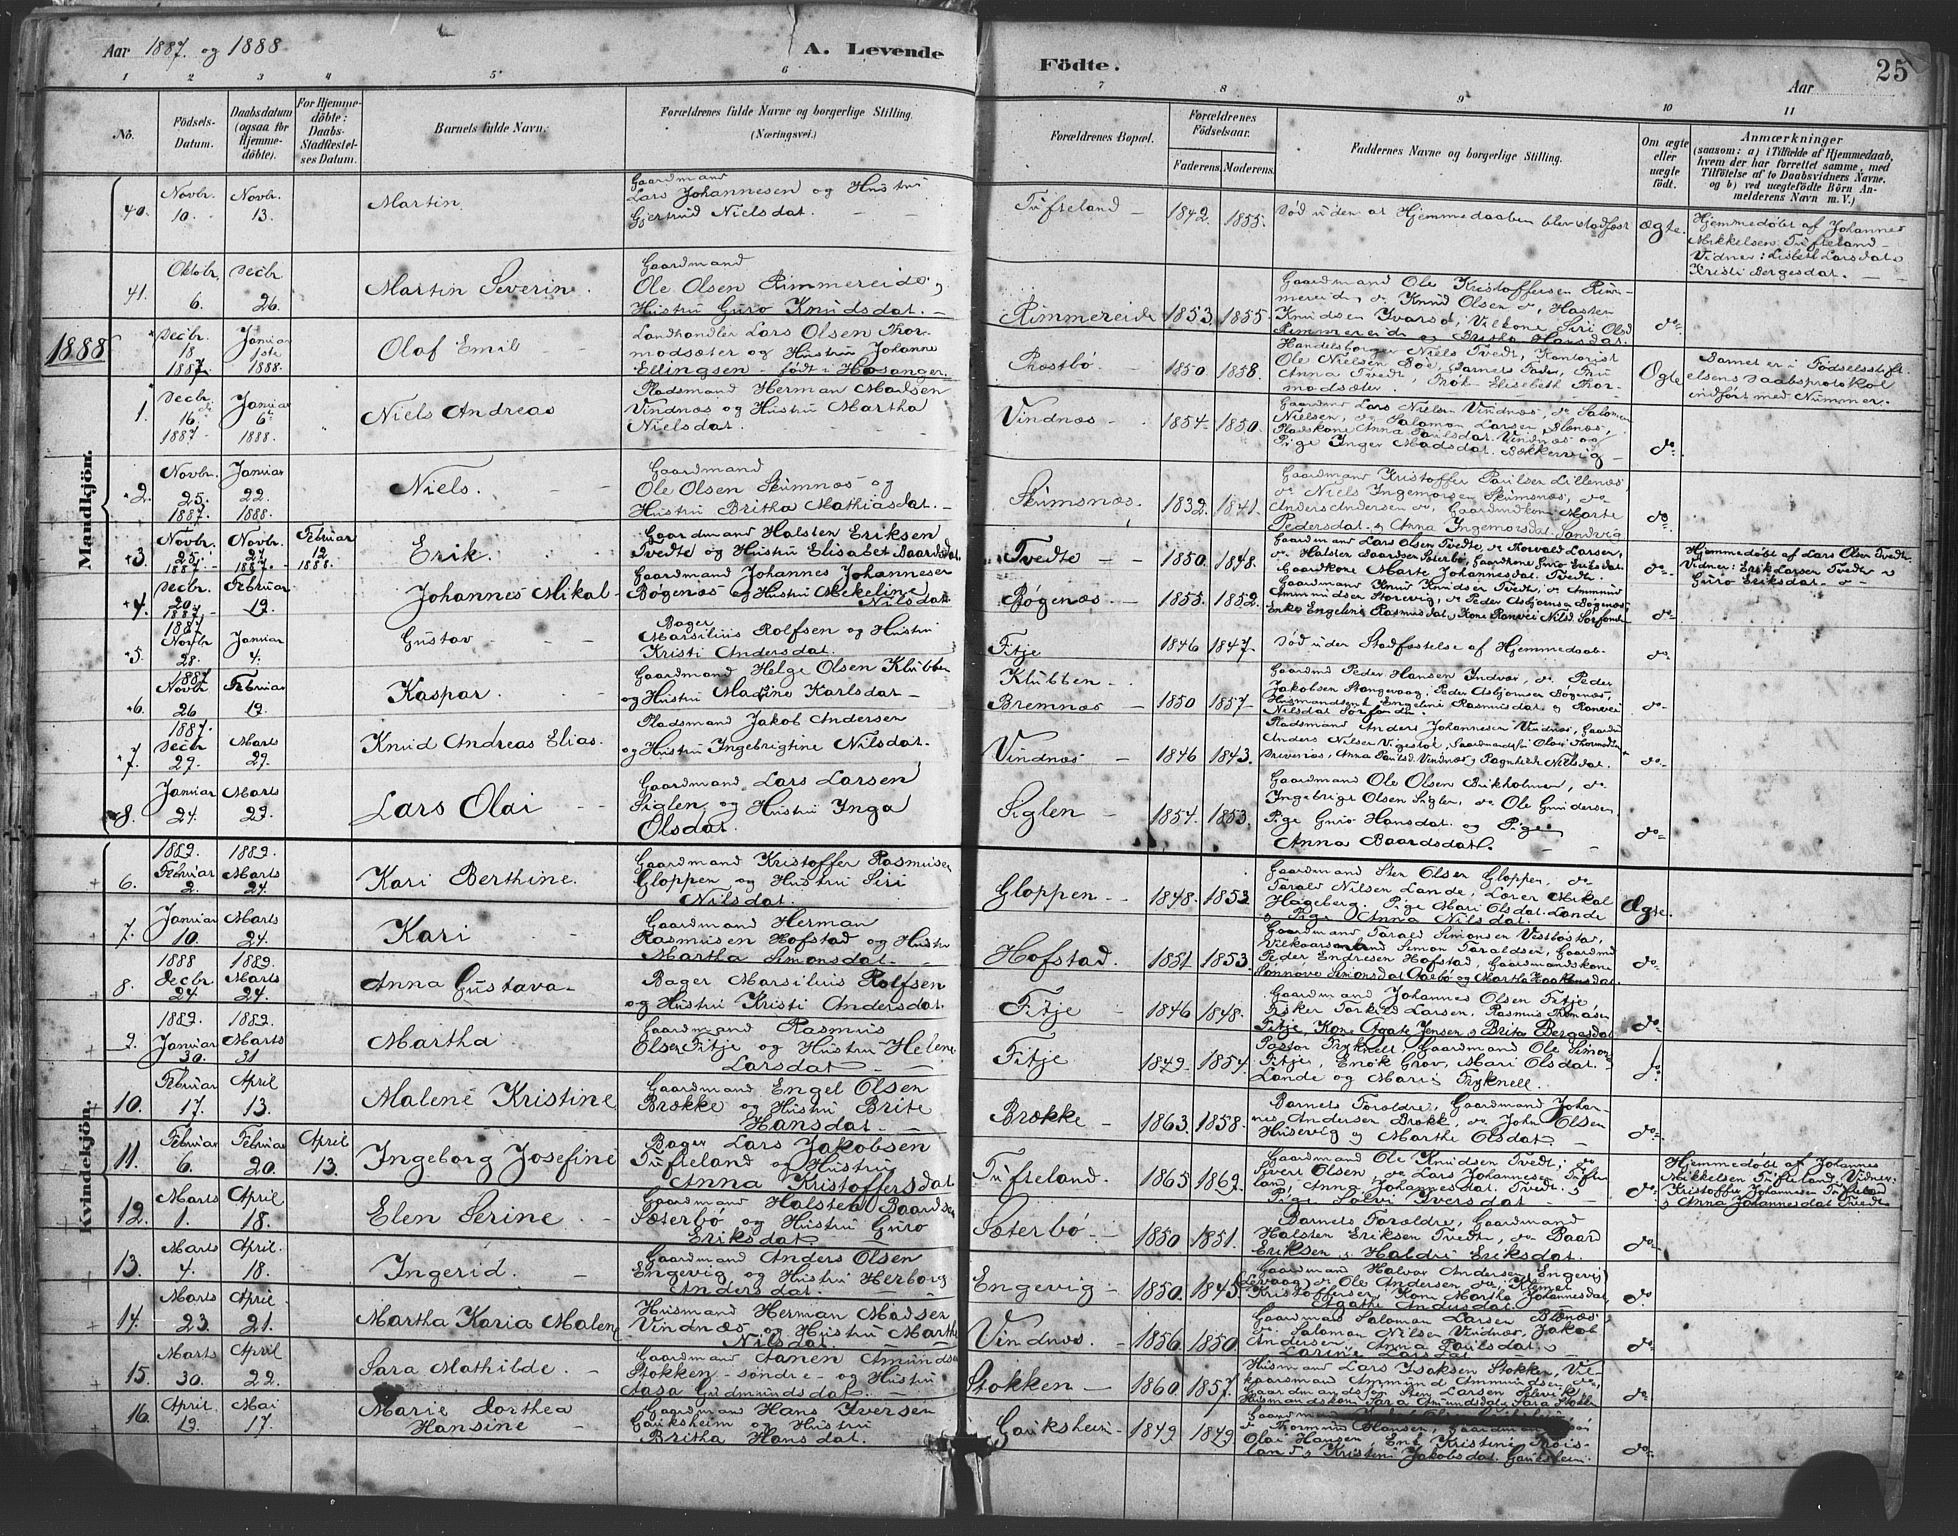 Aar 1887. og 1888
A. Levende Födte.
Aar
25
1 2 3 4 5 6 7 8 9 10 11
No.
Födsels-Datum.
Daabsdatum (ogsaa for Hjemme-döbte).
For Hjemme-döbte: Daabs-Stadfæstel-ses Datum.
Barnets fulde Navn.
Forældrenes fulde Navne og borgerlige Stilling. (Næringsvei.)
Forældrenes Bopæl.
Forældrenes Födselsaar.
Faderens. Moderens.
Faddernes Navne og borgerlige Stilling.
Om ægte eller uægte födt.
Anmærkninger
(saasom: a) i Tilfælde af Hjemmedaab, hvem der har forrettet samme, med Tilföielse af to Daabsvidners Navne, og b) ved uægtefödte Börn An-melderens Navn m. V.)
Mandkjön.
40. Novbr. 10. Novbr. 13. Martin. Gaardmand Lars Johannesen og Hustru Gjertrud Nielsdat. Tufteland 1842. 1855. Död uden at Hjemmedaaben blev stadfæst Ægte. Hjemmedöbt af Johannes Mikkelsen Tufteland Vidner: Lisbeth Larsdat & Kristi Bergesdat.
41. Oktobr. 6. Decbr 26. Martin Severin. Gaardmand Ole Olsen Rimmereide, Hustru Guro Knudsdat. Rimmereide 1853. 1855. Gaardmand Ole Kristoffersen Rim-mereide, do Knud Olsen do, Hasten Knudsen Ivarsö, Vilkone Siri Olsd Rimmereide og Britha Hansdat. do
1888
Decbr 18 1887. Januar 1ste 1888. Olaf Emil Landhandler Lars Olsen Thor-modsæter og Hustru Johanne Ellingsen - født i Hosanger. Præstbö 1850. 1858. Handelsborger Niels Tvedt, Kontorist Ole Nielsen Böe, Barnets Fader, Fru Anna Tvedt, Frök. Elisabeth Thor-modsæter. Ægte Barnet er i Födselsstift-elsens Daabsprotokol indfört med Nummer.
1. Decbr. 16 1887 Januar 6 1888. Niels Andreas Pladsmand Herman Madsen Vindnæs og Hustru Martha Nielsdat. Vindnæs 1854. 1850. Gaardmænd Lars Nielsen Vindnæs, do Salomon Nielsen, do Salomon Larsen Blænæs, Pladskone Anna Paulsdat. Vindnæs og Pige Inger Madsdat. Bækkervig do
2. Novbr. 25. 1887. Januar 22. 1888. Niels. Gaardmand Ole Olsen Skumsnæs og Hustru Britha Mathiasdat. Skumsnæs. 1832. 1841. Gaardmand Kristoffer Paulsen Lillenæs, do Niels Ingemorsen Skumsnæs, do Anders Andersen do, Gaardmandkone Marte Pedersdat. & Anna Ingemorsdat. Sandvig do
3. Novbr. 25. 1887. Novbr. 27 1887. Februar 12 1888. Erik. Gaardmand Halsten Eriksen Tvedte og Hustru Elisabet Baardsdat. Tvedte 1850. 1848. Gaardmand Lars Olsen Tvedte, do Torvald Larsen, do Halsten Baardsen Sæterbö, Gaardkone Guro Eriksdat. Gaardkone Marte Johannesdat. Tvedt. do Hjemmedöbt af Lars Olsen Tvedt. Vidner: Erik Larsen Tvedt & Guro Eriksdat.
4. Decbr. 20. 1887. Februar 19. Johannes Mikal Gaardmand Johannes Johannesen Bögenæs og Hustru Mekeline Nilsdat. Bögenæs 1855. 1852. Gaardmand Knud Knudsen Tvedt, do Ammund Ammundsen Storevig, do Peder Asbjornsen Bögenæs, Enke Engelini Rasmusdat, Kone Ranvei Nilsd. Sörfonde do
5. 1887 Novbr. 28. Januar 4. Gustav Bager Marsilius Rolfsen og Hustru Kristi Andersdat. Fitje 1846 1847. Död uden Stadfæstelse af Hjemmedaab. do
6. 1887 Novbr 26 Februar 19. Kaspar. Gaardmand Helge Olsen Klubben og Hustru Madine Karlsdat. Klubben Bremnæs 1850 1857 Gaardmnd Peder Hansen Indvær, do Peder Jakobsen Stangevaag, Peder Asbjornsen Bögenæs, Husmandsenk. Engelini Rasmusdat. og Ranvei Nilsdat Sörfonde. do
7. 1887. Decbr 29. Marts 29. Knud Andreas Elias. Pladsmand Jakob Andersen og Hustru Ingebrigtine Nilsdat. Vindnæs 1846 1843. Pladsmand Anders Johannesen Vindnæs, Gaardm Anders Nilsen Vigestöl, Anna Paulsd. Vindnæs, Ragnhild Nielsdat. do
8. Januar 24. Marts 29. Lars Olai Gaardmand Lars Larsen Siglen og Hustru Inga Olsdat. Siglen 1854. 1853. Gaardmand Ole Olsen Birkholmen, do Ingebrigt Olsen Siglen, do Ole Gundersen, Pige Guro Hansdat. og Pige Anna Baardsdat. do
Kvindekjön.
6. 1889. Februar 2. 1889. Marts 24. Kari Berthine. Gaardmand Kristoffer Rasmusen Gloppen og Hustru Siri Nilsdat. Gloppen 1848. 1853 Gaardmand Sten Olsen Gloppen, do Tarald Nilsen Lande, Lærer Mikal Hageberg. Pige Mari Olsdat. Lande & Pige Anna Nilsdat. Ægte.
7. Januar 10. Marts 24. Kari Gaardmand Herman Rasmusen Hofstad og Hustru Martha Simonsdat. Hofstad. 1851. 1853. Gaardmand Tarald Simonsen Vestböstad, Vilkaarsmand Simon Taraldsen, Gaardmnd Peder Endresen Hofstad, Gaardmandskone Sönnove Simonsdat Aarbö og Martha Haakensdat. do
8. 1888 Decbr 24. 1889. Marts 24. Anna Gustava Bager Marsilius Rolfsen og Hustru Kristi Andersdat. Fitje 1846 1848. Gaardmand Johannes Olsen Fitje, Fisker Torkild Larsen, Rasmus Thomasen Fitje, Kone Agate Jensen & Brita Bergesdat do
9. 1889. Januar 30. 1889. Marts 31 Martha Gaardmand Rasmus Olsen Fitje og Hustru Helene Larsdat Fitje 1849. 1854. Pastor Fryknell Gaardmand Ole Simons Fitje, Enok Grov, Mari Olsdat. Lande og Maris Fryknell. do
10. Februar 17. April 13. Malene Kristine Gaardmand Engel Olsen Brække og Hustru Brite Hansdat. Brække 1863. 1858. Barnets Forældre, Gaardmand Johan-nes Andersen Brække, do John Olsen Husevig & Marthe Olsdat. do
11. Februar 6. Februar 20. April 13. Ingeborg Josefine Bager Lars Jakobsen Tufteland og Hustru Anna Kristoffersdat Tufteland. 1865 1869. Gaardmand Ole Knudsen Tvedt, do Sivert Olsen do Lars Johannesen Tufte-land, Anna Johannesdat Tvedt. & Pige Salvi Iversdat do Hjemmedöbt af Johannes Mikkelsen Tufteland, Vidner Kristoffer Johannesen Tufteland & Anna Johannesdat Tvedt
12. Marts 1. April 18. Elen Serine Gaardmand Halsten Baardsen Sæterbö og Hustru Guro Eriksdat Sæterbö 1850 1851. Barnets Forældre, Gaardmand Halsten Eriksen Tvedt, do Baar Eriksen & Haldis Eriksdat. do
13. Marts 4. April. 18. Ingerid. Gaardmand Anders Olsen Engevig og Hustru Herborg Andersdat. Engevig 1850. 1845. Gaardmand Halvor Andersen Engevig (Levaag) do Ole Andersen do, Klemet Kristoffersen, Kone Martha Johannesdat, Agathe Andersdat. do
14. Marts 23. April. 21. Martha Karia Malene Husmand Herman Madsen Vindnæs og Hustru Marthe Nilsdat. Vindnæs. 1856. 1850. Gaardmand Salomon Larsen Blænæs, do Salomon Nilsen Vindnæs, Jakob Andersen Anna Paulsdat. & Larine Larsdat do
15. Marts 30. April 22. Sara Mathilde. Gaardmand Aanen Amundsen Stokken söndre og Hustru Aasa Gudmundsdat. Stokken 1860. 1857. Husmand Lars Isaksen Stokken, Vil-kaarsmand Ammund Ammundsen do, Gaardmandssön Sten Larsen Slevik, Husmandskone Sara Amundsdat & Sara Stokken do
16. April. 19. Mai 17. Marie Dorthea Hansine Gaardmand Hans Iversen Gauksheim og Hustru Britha Hansdat. Gauksheim 1849 1849 Olai Hansen, Enk. Kristine Thois-land & Kristine Jakobsdat. Gauksheim. do